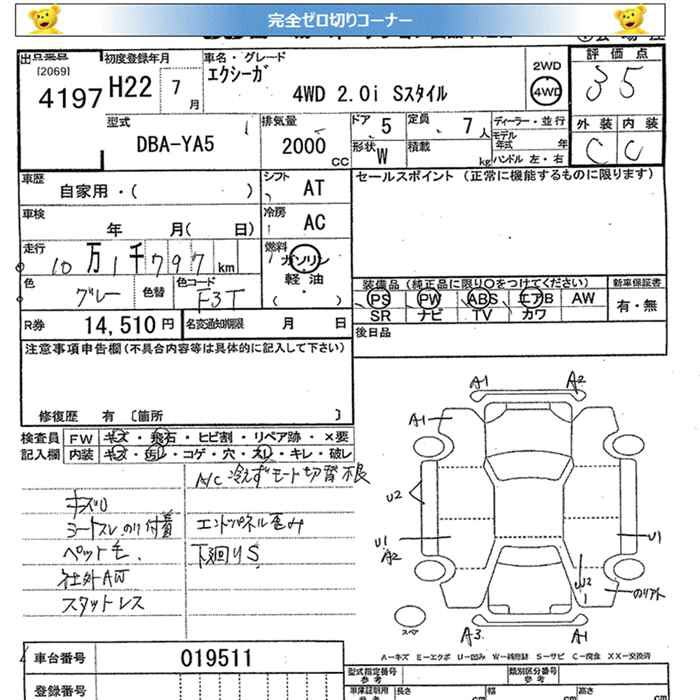 完全ゼロ切りコーナー
出品番号 初度登録年月 車名・グレード 評価点
[2069] エクシーガ 2WD
4197 H22 7月 4WD 2.0i Sスタイル 4WD 3 5
型式 排気量 ドア 5 定員 7人 ディーラー・並行 外装 内装
DBA-YA5 2000CC 形状 W 積載 kg モデル年式 年 C C
ハンドル 左・右
車歴 シフト AT セールスポイント (正常に機能するものに限ります)
自家用・( )
車検 冷房 AC
年 月( 日)
走行 燃料
10万1千797km ガソリン
色 色替 色コード 軽・油 装備品 (純正品に限り○をつけてください) 新車保証書
グレー F3T ( ) PS PW ABS エアB AW 有・無
R券 14,510円 名変通知期限 月 日 SR ナビ TV カワ
注意事項申告欄(不具合内容等は具体的に記入して下さい) 後日品
修復歴 有 〔箇所 〕
検査員 FW キズ・飛石・ヒビ割・リペア跡・×要
記入欄 内装 キズ・汚レ・コゲ・穴・スレ・キレ・破レ
A/C 冷えずモード切替不良
キズU
シートスレ のり付着 エンドパネル歪み
ペット毛. 下廻りS
社外AW
スタットレス
A1 A2
A1
U2
U1 A2 U1
U2 のリアト
スペア A3 A1
A−キズ E−エクボ U−凹み W−補修跡 S−サビ C−腐食 XX−交換済
車台番号 019511
登録番号
型式指定番号 参考 類別区分番号 参考
車庫証明用 参考 長さ cm 幅 cm 高さ cm